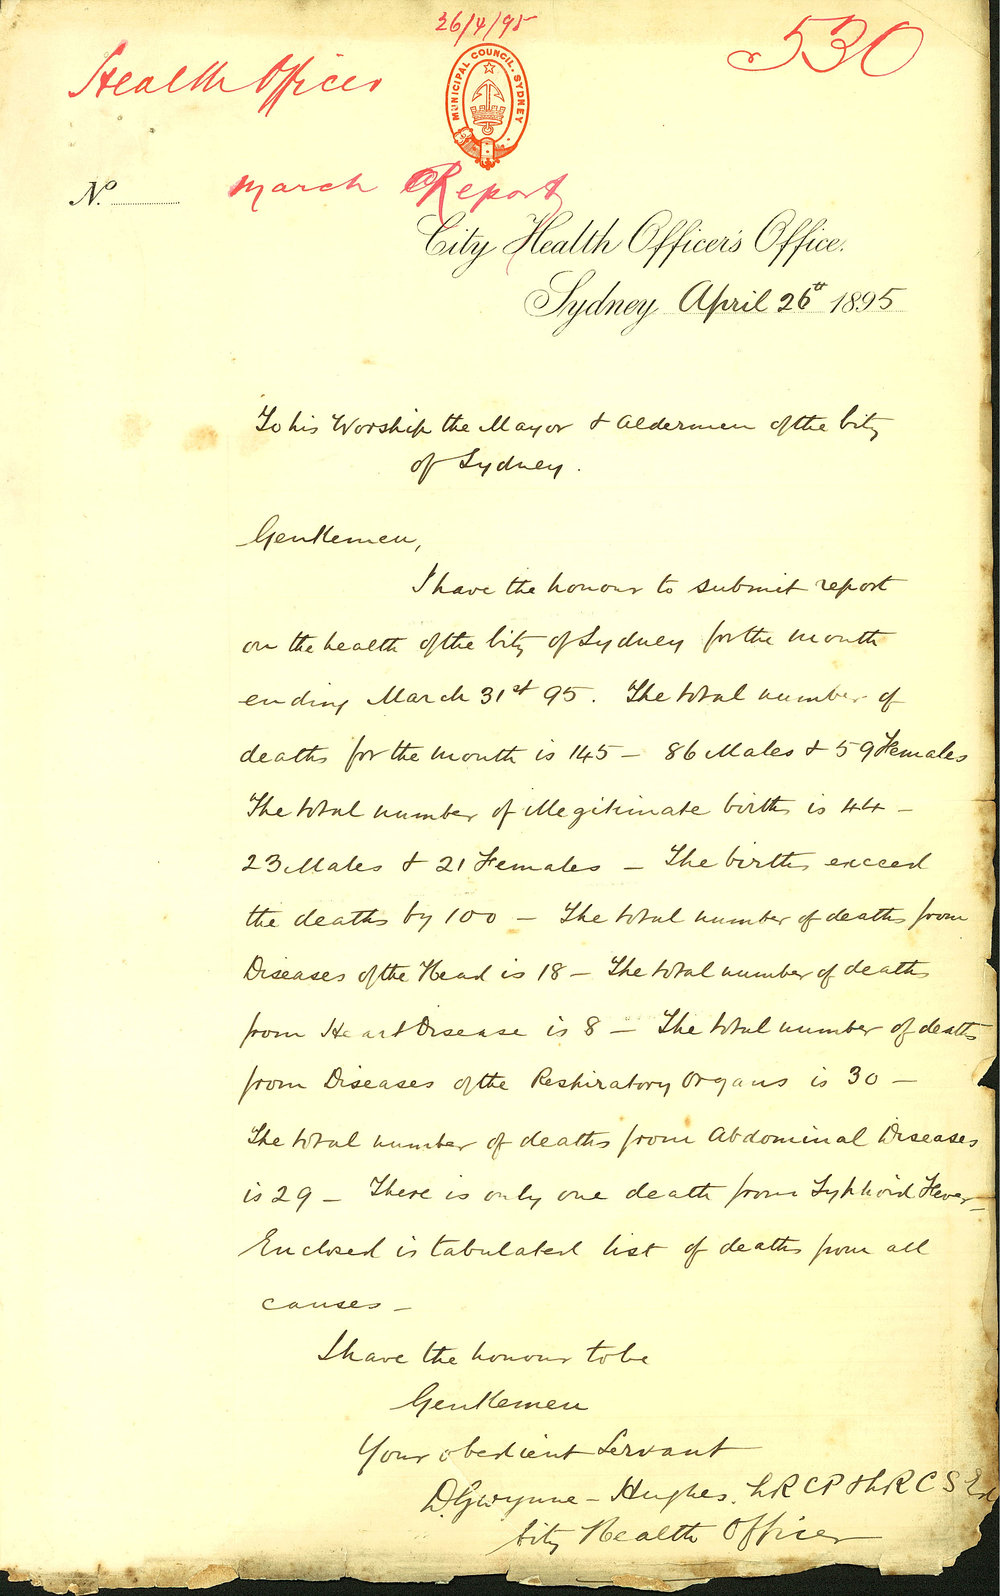 26/4/95
530
Health Officer
MUNICIPAL COUNCIL. SYDNEY
No.
March Report
City Health Officer's Office.
Sydney April 26th 1895
To his Worship the Mayor & Aldermen of the City
of Sydney.
Gentlemen,
I have the honour to submit report
on the health of the City of Sydney for the month
ending March 31st 95. The total number of
deaths for the month is 145 – 86 Males & 59 Females
The total number of illegitimate births is 44 –
23 Males & 21 Females – The births exceed
the deaths by 100 – The total number of deaths from
Diseases of the Head is 18 – The total number of deaths
from Heart Disease is 8 – The total number of deaths
from Diseases of the Respiratory Organs is 30 –
The total number of deaths from Abdominal Diseases
is 29 – There is only one death from Typhoid Fever –
Enclosed is tabulated list of deaths from all
causes –
I have the honour to be
Gentlemen
Your obedient Servant
D. Gwynne-Hughes. LRCP & LRCS Ed
City Health Officer